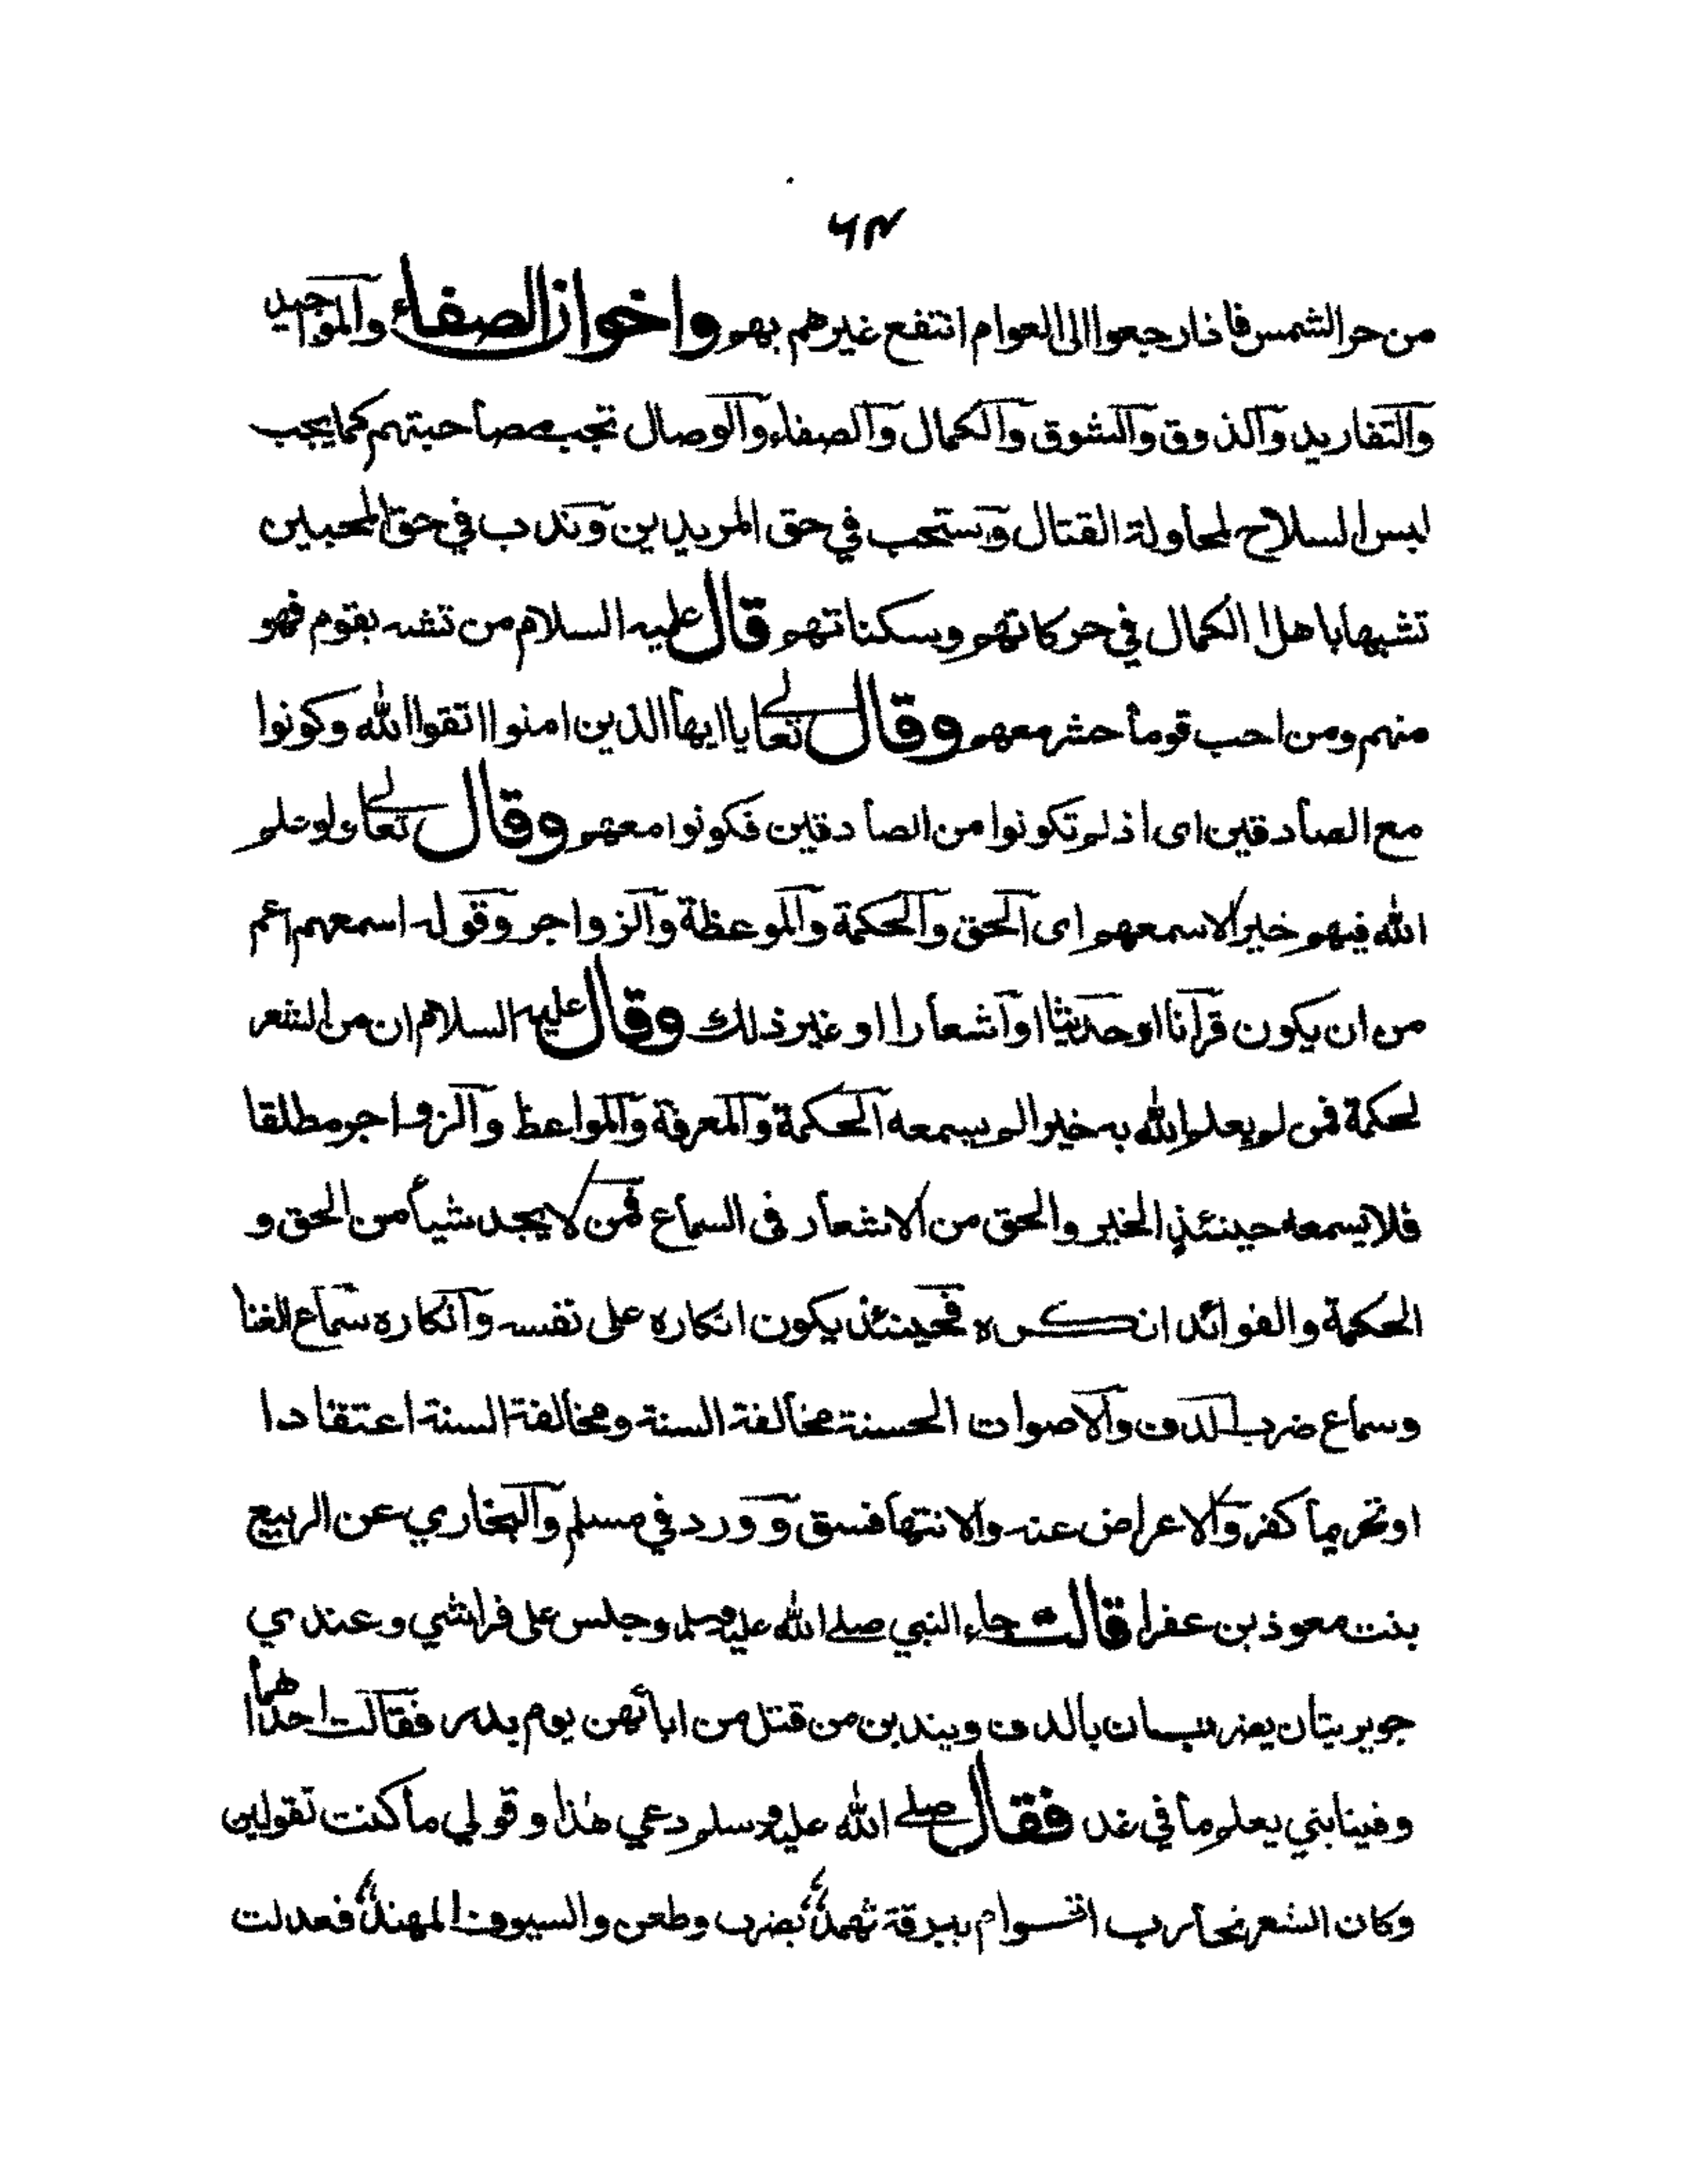 ٦٣
من حر الشمس فاذا رجعوا الى العوام انتفع غيرهم بهم واخوان الصفاء والمواجيد
والتفاريد والذوق والشوق والكمال والصفاء والوصال تجب مصاحبتهم كما يجب
لبس السلاح لمحاولة القتال وتستحب في حق المريدين وتدب في حق المحبين
تشبها باهل الكمال في حركاتهم وسكناتهم قال عليه السلام من تشبه بقوم فهو
منهم ومن احب قوما حشر معهم وقال تعالى يا ايها الذين امنوا اتقوا الله وكونوا
مع الصادقين اى اذ لم تكونوا من الصادقين فكونوا معهم وقال تعالى ولو علم
الله فيهم خيرا لاسمعهم اى الحق والحكمة والموعظة والزواجر وقوله اسمعهم اعم
من ان يكون قرآنا او حديثا او اشعارا او غير ذلك وقال عليه السلام ان من الشعر
لحكمة فمن لم يعلم الله به خيرا لم يسمعه الحكمة والمعرفة والمواعظ والزواجر مطلقا
فلا يسمعه حينئذ الخير والحق من الاشعار فى السماع فمن لا يجد شيأ من الحق و
الحكمة والفوائد انكره فحينئذ يكون انكاره على نفسه وانكاره سماع الغنا
وسماع ضرب الدف والاصوات الحسنة مخالفة السنة ومخالفة السنة اعتقادا
او تحريما كفر والاعراض عنه والانتها فسق وورد في مسلم والبخاري عن الربيع
بنت معوذ بن عفرا قالت جاء النبي صلى الله عليه وسلم وجلس على فراشي وعندي
جويريتان يضربان بالدف ويندبن من قتل من ابائهن يوم بدر فقالت احداهما
وفينا بني يعلم ما في غد فقال صلى الله عليه وسلم دعي هذا وقولي ما كنت تقولين
وكان الشعر نحارب اقوام ببرقة ثهمد بضرب وطعن والسيوف المهند فعدلت